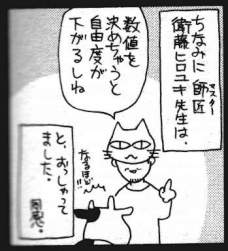 ちなみに 師匠
マスター
衛藤ヒロユキ先生は、
数値を
決めちゃうと
自由度が
下がるしね
なるほど!!
と、おっしゃって
ました。